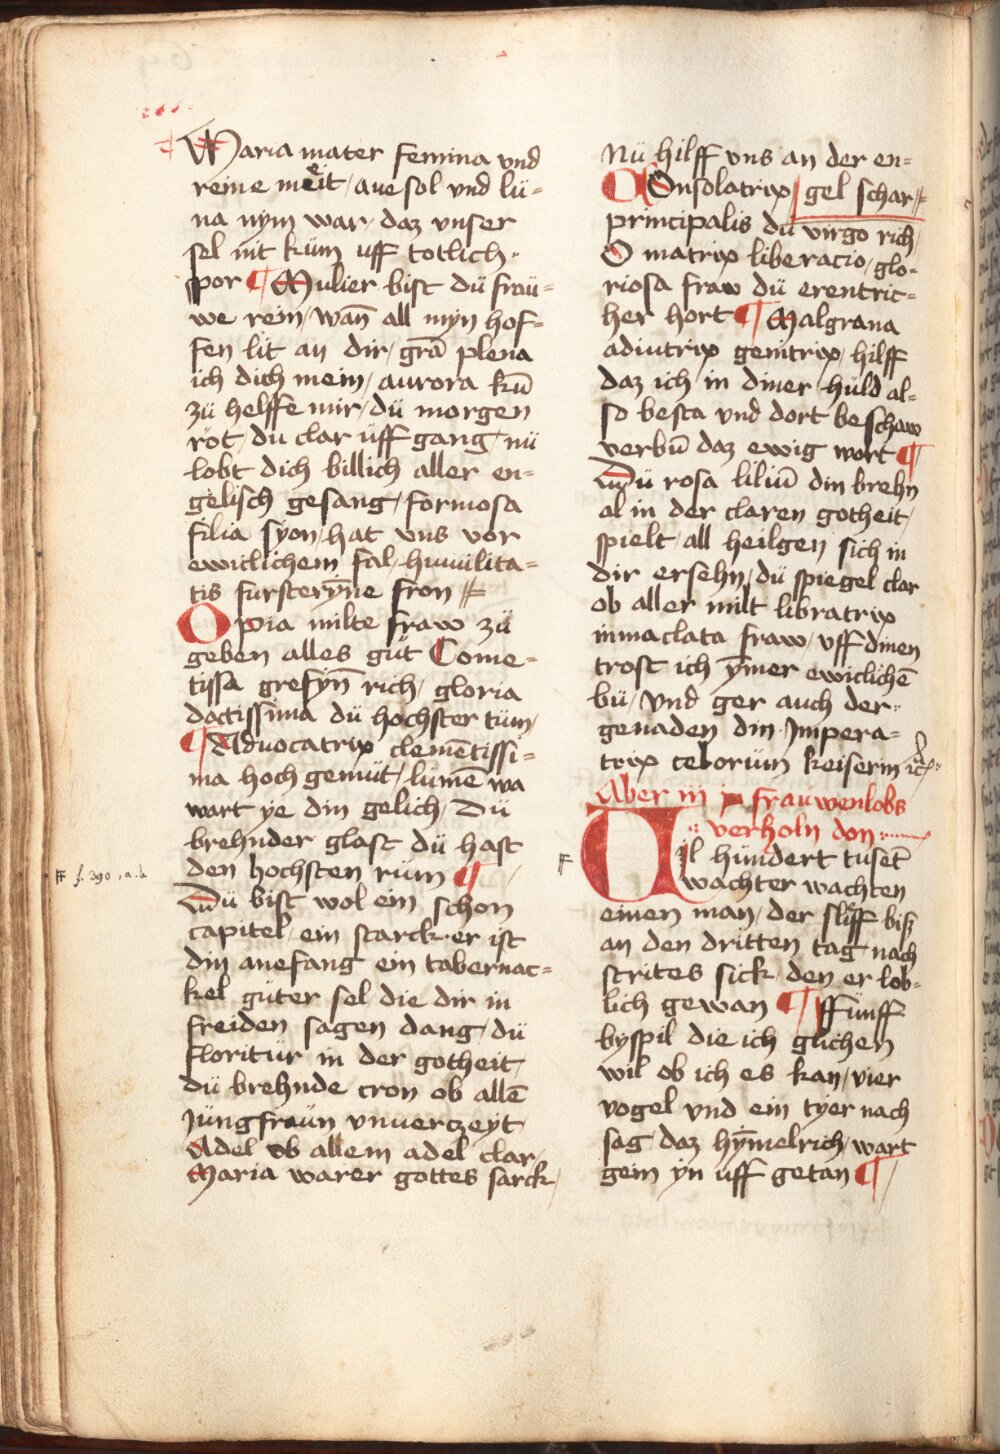 Maria mater femina vnd
reine meit / aue sol vnd lu-
na nym war / daz vnser
sel nit kum uff totlich
spor ¶ Mulier bist dü frau-
we rein / wan̄ all myn hof-
fen lit an dir / gr̄a plena
ich dich mein / aurora kū
zü helffe mir / dü morgen
röt / du clar uff gang / nü
lobt dich billich aller en-
gelisch gesang / formosa
filia syon / hat vns vor
ewiclichem fal / humilita-
tis fursterȳne fron
O pia milte fraw zü
geben alles güt Come-
tissa grefȳn rich / gloria
dactissima dü hochster tüm /
¶ Aduocatrix clemētissi-
ma hoch gemüt / lumē wa
wart ye din gelich / Dü
brehnder glast dü hast
den hochsten rüm ¶
Dü bist wol ein schon
capitel / ein starck er ist
din anefang ein tabernac-
kel güter sel die dir in
freiden sagen dang / dü
floritür in der gotheit /
dü brehnde cron ob allē
Jüngfraün vnuerczeyt
Adel ob allem adel clar /
Maria warer gottes sarck /
ff f. 290, a. b.
Nü hilff vns an der en-
gel schar
Consolatrix
principalis dü virgo rich /
O matrix liberacio / glo-
riosa fraw dü erentric-
her hort ¶ Malgrana
adiutrix genitrix / hilff
daz ich in diner huld al-
so besta vnd dort beschaw
verbū daz ewig wort ¶
Dü rosa liliū din brehn
al in der claren gotheit /
spielt / all heilgen sich in
dir ersehn / dü spiegel clar
ob aller milt libratrix
inmaclata fraw / vff dinen
trost ich ȳmer ewiclichē
bü / vnd ger auch der
genaden din Impera-
trix celorum keiserin
Aber iii jn frauwenlobs
verholn don
Uil hundert tusēt
wachter wachten
einen man / der slieff biß
an den dritten tag nach
strites sick den er lob-
lich gewan ¶ ffünff
byspil die ich glichen
wil ob ich es kan / vier
vogel vnd ein tyer nach
sag daz hȳmelrich / wart
gein yn uff getan ¶